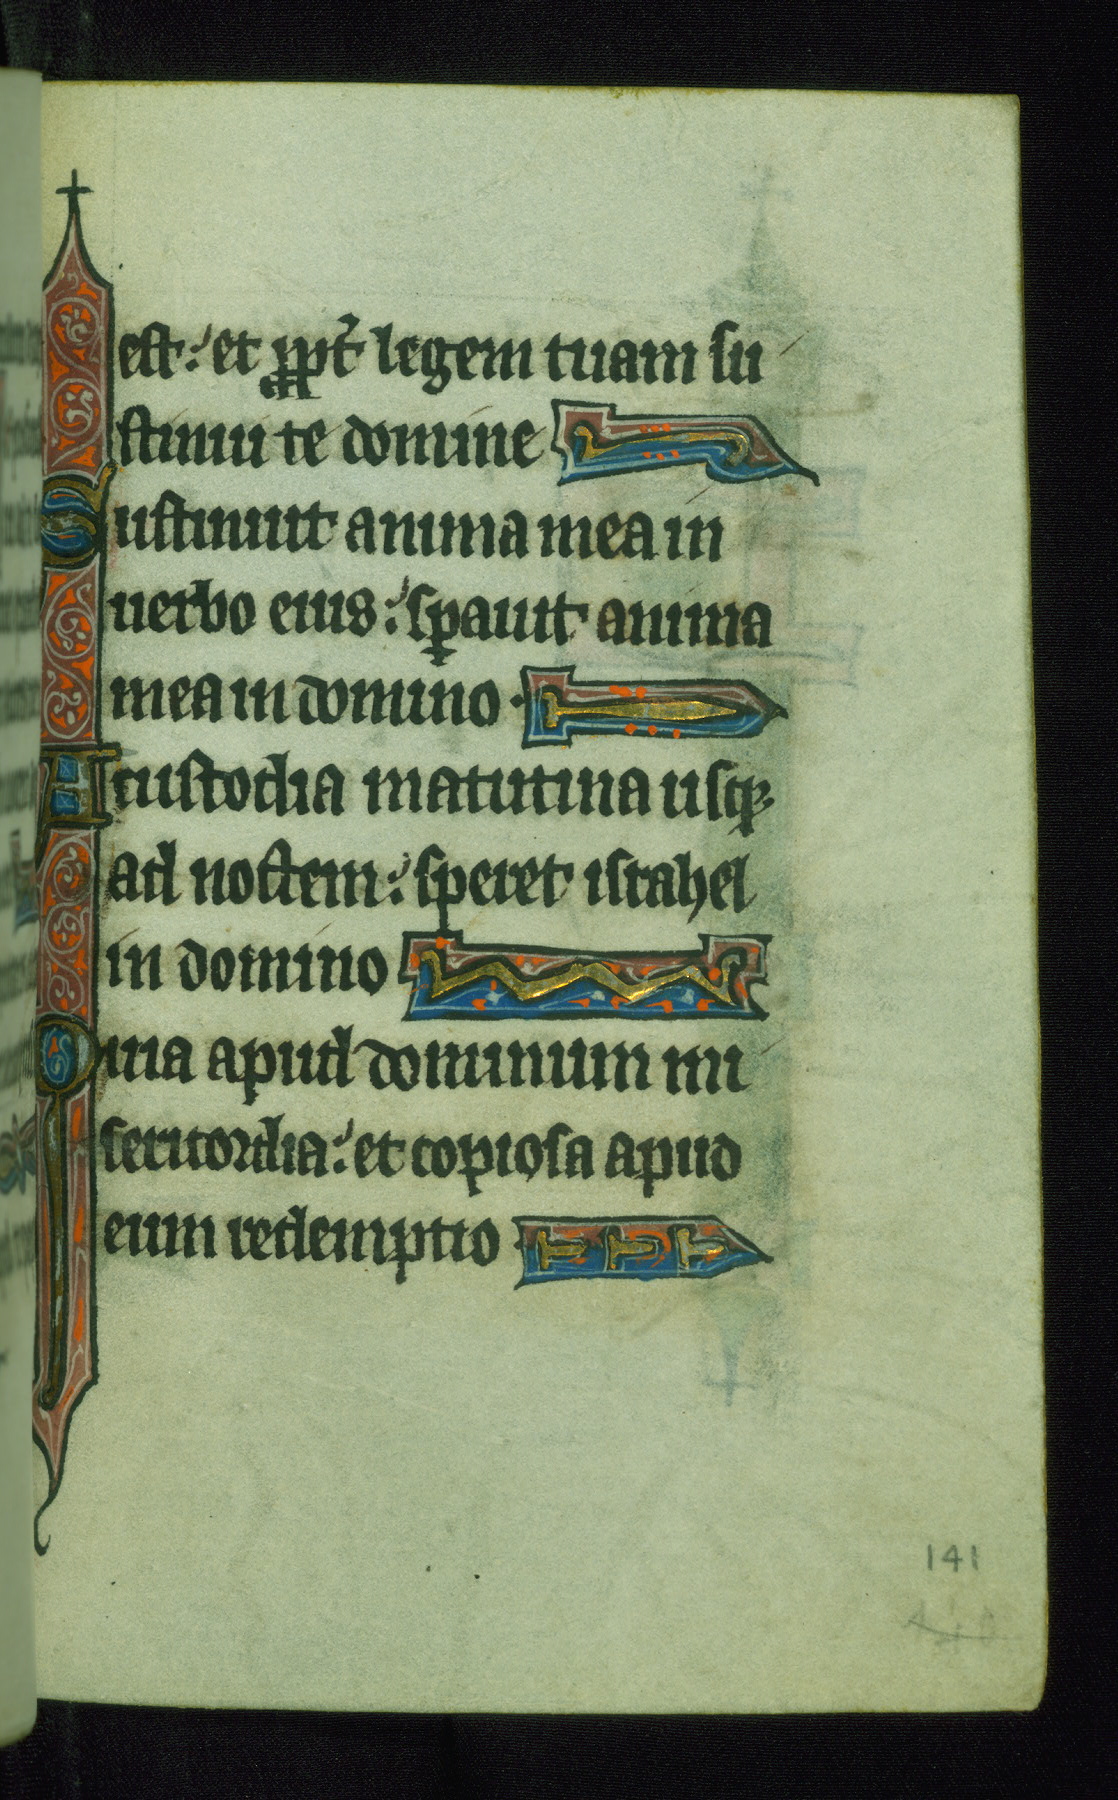 est: et ꝓpt̄ legem tuam su
stinui te domine
Sustinuit anima mea in
uerbo eius: sꝑauit anima
mea in domino.
A custodia matutina usqꝫ
ad noctem: speret israhel
in domino
Quia apud dominum mi
sericordia: et copiosa apud
eum redemptio
141